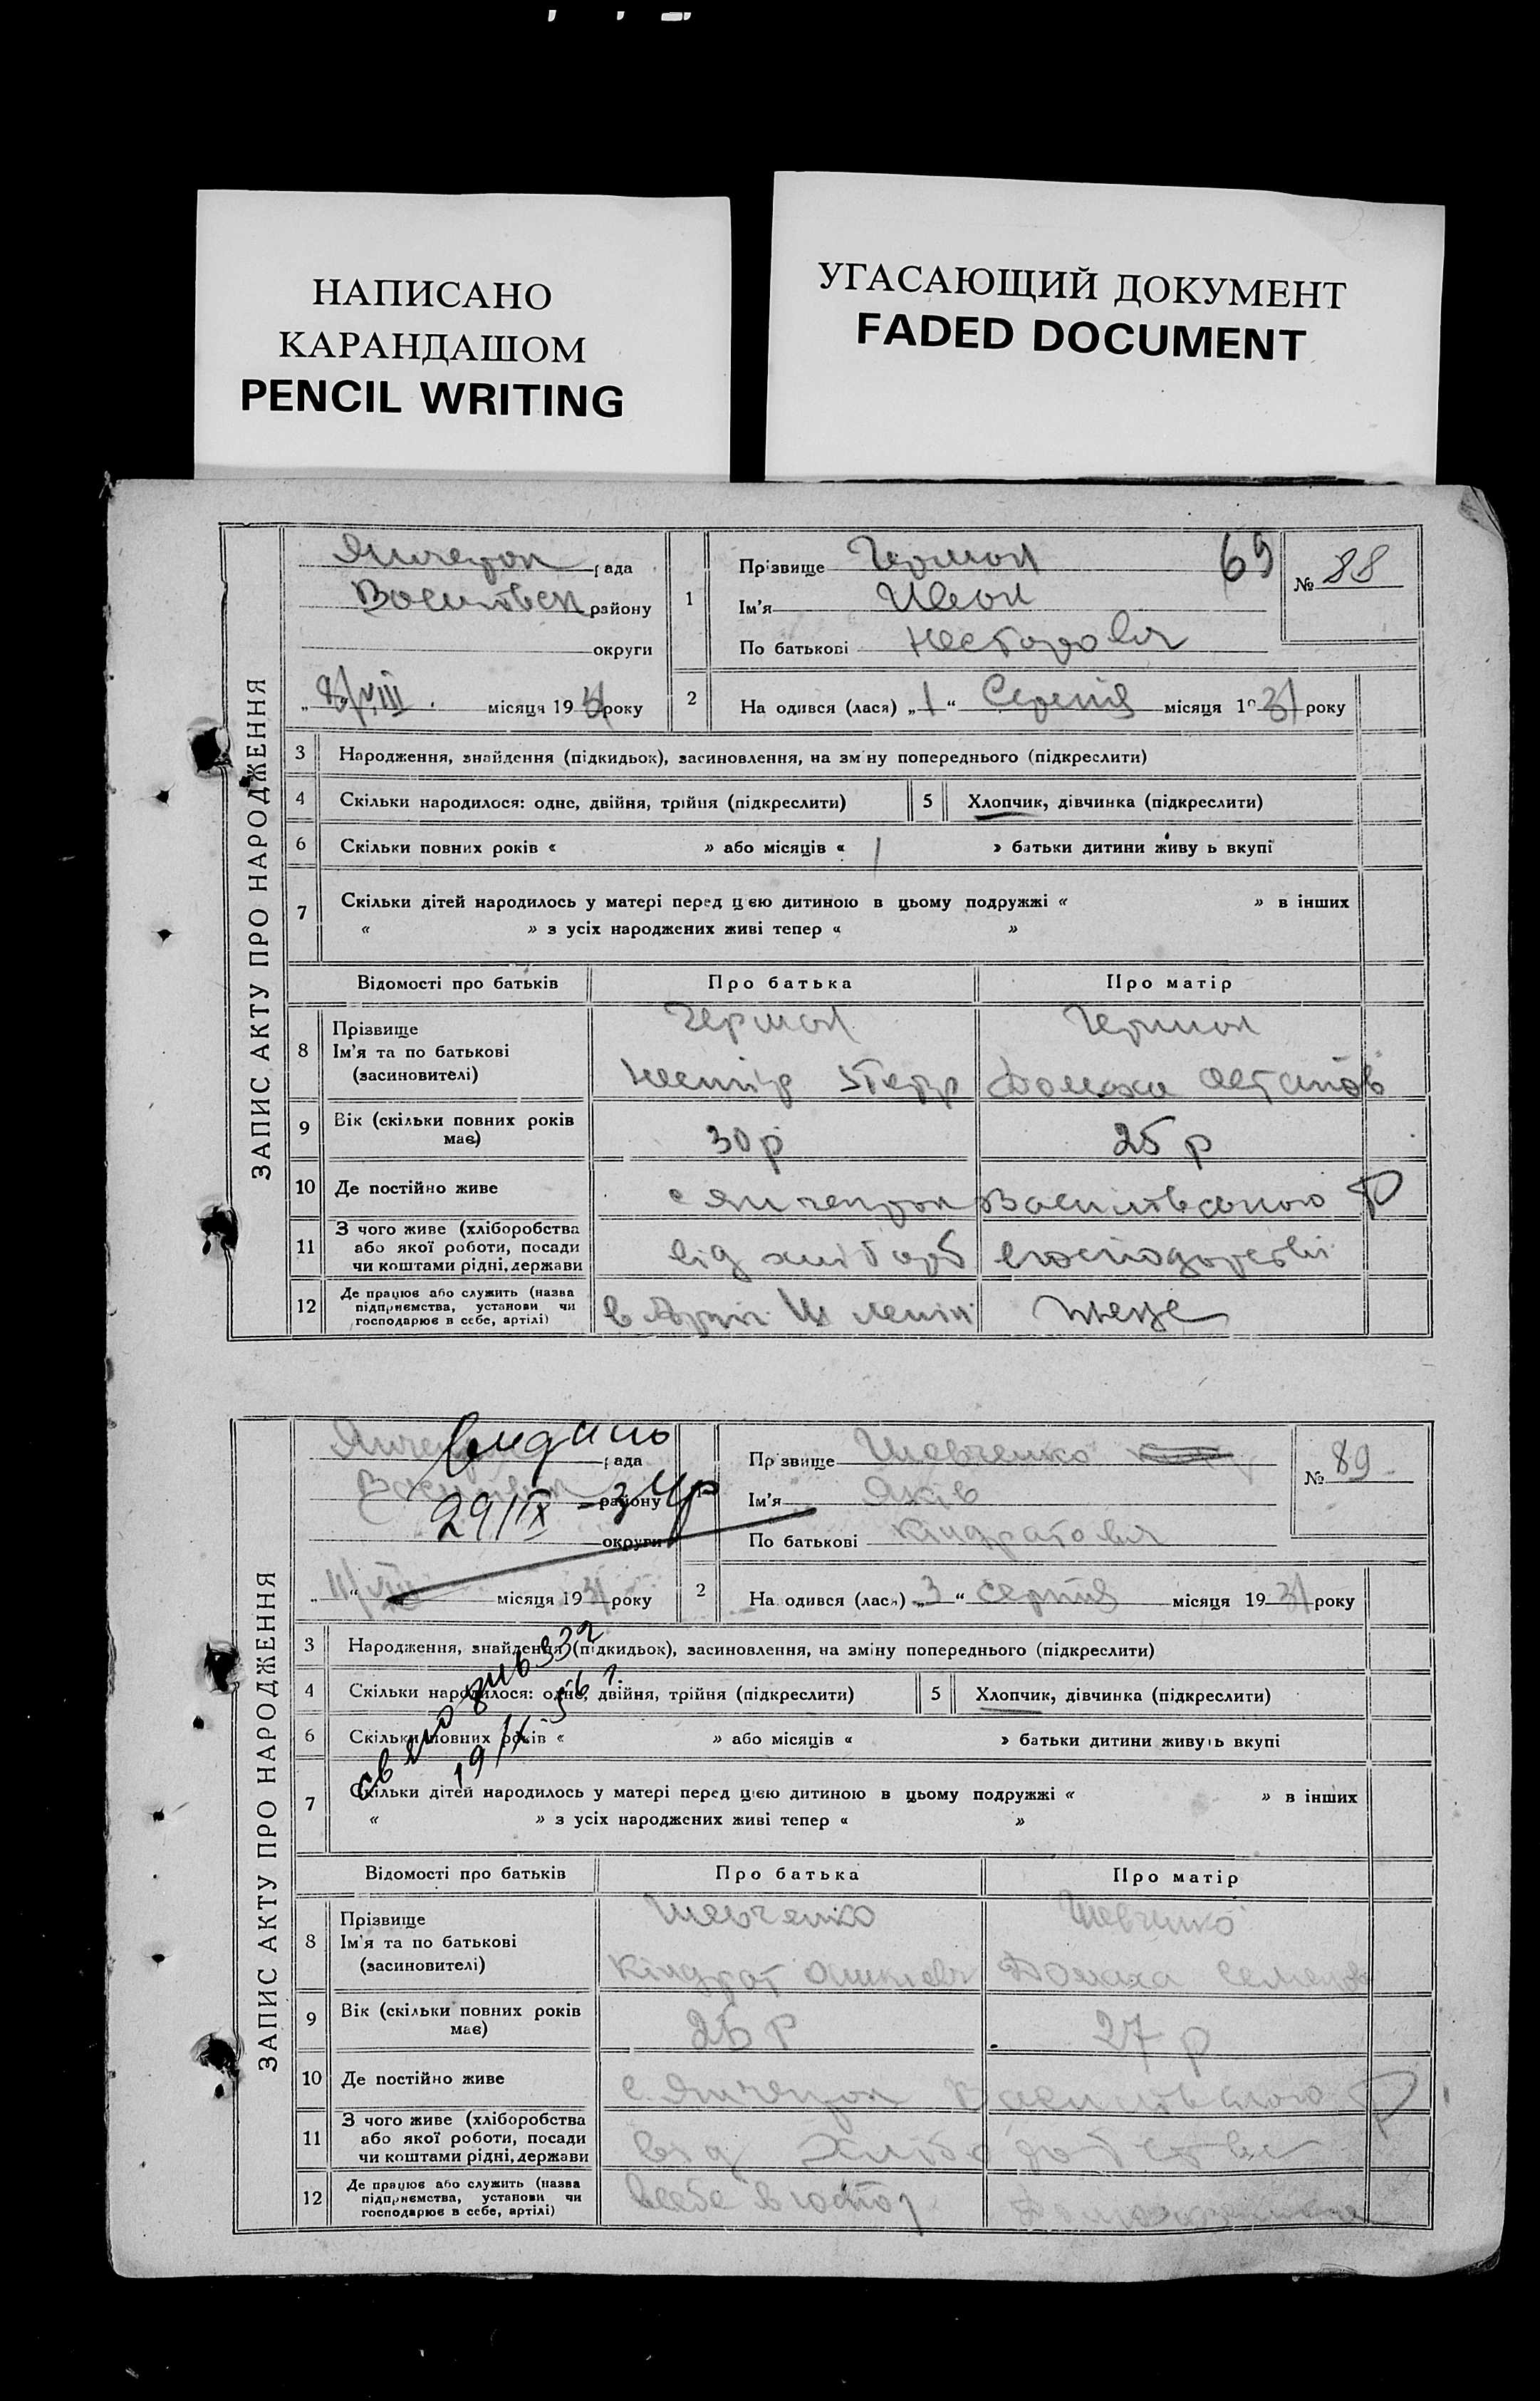 НАПИСАНО
КАРАНДАШОМ
PENCIL WRITING
УГАСАЮЩИЙ ДОКУМЕНТ
FADED DOCUMENT
ЗАПИС АКТУ ПРО НАРОДЖЕННЯ
рада
району
округи
8/VIII місяця 1931 року
69
№ 88
1 Прізвище Герман
Ім'я Иван
По батькові Несторович
2 На одився (лася) „1“ Серпня місяця 1931 року
3 Народження, знайдення (підкидьок), засиновлення, на зміну попереднього (підкреслити)
4 Скільки народилося: одне, двійня, трійня (підкреслити)
5 Хлопчик, дівчинка (підкреслити)
6 Скільки повних років « » або місяців « 1 » батьки дитини живу ь вкупі
7 Скільки дітей народилось у матері перед цією дитиною в цьому подружжі « » в інших
« » з усіх народжених живі тепер « »
Відомості про батьків Про батька Про матір
8 Прізвище Герман Герман
Ім'я та по батькові
(засиновителі) Нестір Домаха Остапов
9 Вік (скільки повних років має) 30 р 25 р
10 Де постійно живе с Янчекрак Василівського Р
11 З чого живе (хліборобства
або якої роботи, посади
чи коштами рідні, держави від хлібороб
12 Де працює або служить (назва
підприємства, установи чи
господарює в себе, артілі) в Артіл Ленін теже
ЗАПИС АКТУ ПРО НАРОДЖЕННЯ
рада
району
округи
29/IX
11/VIII місяця 1931 року
№ 89
Прізвище Шевченко
Ім'я Яків
По батькові Кіндратович
2 На одився (лася) „3“ серпня місяця 1931 року
3 Народження, знайдення (підкидьок), засиновлення, на зміну попереднього (підкреслити)
4 Скільки народилося: одне, двійня, трійня (підкреслити)
5 Хлопчик, дівчинка (підкреслити)
6 Скільки повних років « » або місяців « » батьки дитини живуть вкупі
19/IX 56 г.
7 Скільки дітей народилось у матері перед цією дитиною в цьому подружжі « » в інших
« » з усіх народжених живі тепер « »
Відомості про батьків Про батька Про матір
8 Прізвище Шевченко Шевченко
Ім'я та по батькові
(засиновителі) Кіндрат Домаха Семенов
9 Вік (скільки повних років має) 26 Р 27 р
10 Де постійно живе с. Янчекрак Василівського Р
11 З чого живе (хліборобства
або якої роботи, посади
чи коштами рідні, держави від хліборобства
12 Де працює або служить (назва
підприємства, установи чи
господарює в себе, артілі) в себе в господ